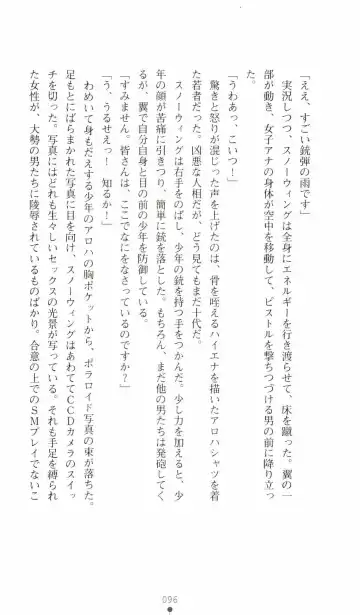 「ええ、すごい銃弾の雨です」
実況しつつ、スノーウィングは全身にエネルギーを行き渡らせて、床を蹴った。翼の一
部が動き、女子アナの身体が空中を移動して、ピストルを撃ちつづける男の前に降り立っ
た。
「うわあっ、こいつ！」
驚きと怒りが混じった声を上げたのは、骨を咥えるハイエナを描いたアロハシャツを着
た若者だった。凶悪な人相だが、どう見てもまだ十代だ。
スノーウィングは右手をのばし、少年の銃を持つ手をつかんだ。少し力を加えると、少
年の顔が苦痛に引きつり、簡単に銃を落とした。もちろん、まだ他の男たちは発砲してく
るが、翼で自分自身と目の前の少年を防御している。
「すみません。皆さんは、ここでなにをなさっているのですか？」
「う、うるせえっ！　知るか！」
わめいて身もだえする少年のアロハの胸ポケットから、ポラロイド写真の束が落ちた。
足もとにばらまかれた写真に目を向け、スノーウィングはあわててCCDカメラのスイッ
チを切った。写真にはどれも生々しいセックスの光景が写っている。それも手足を縛られ
た女性が、大勢の男たちに陵辱されているものばかり。合意の上でのSMプレイでないこ
096